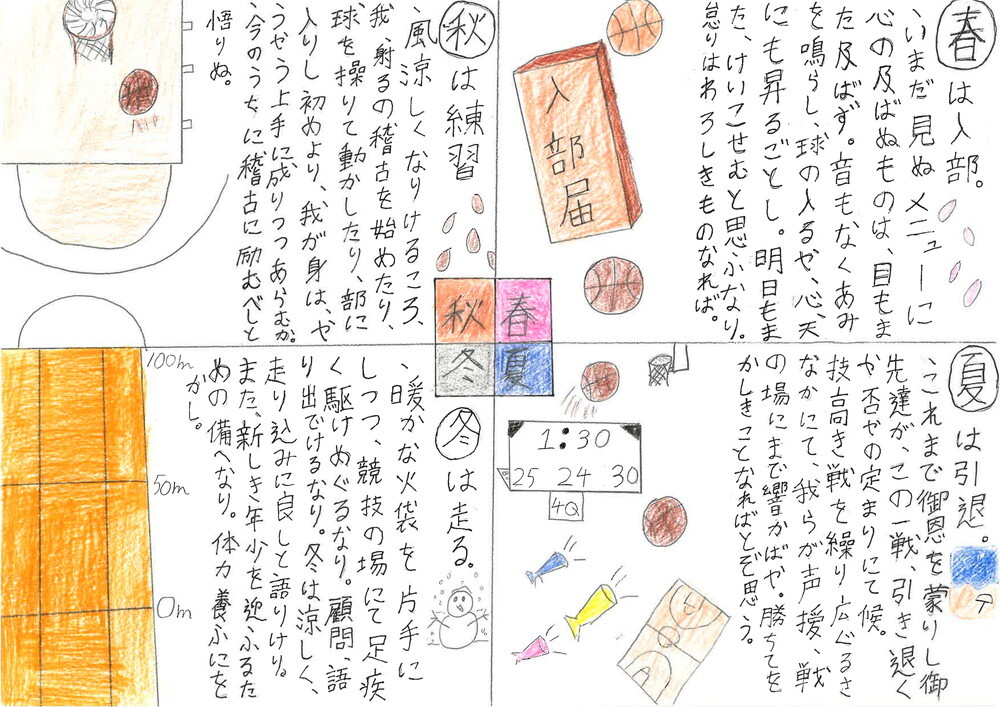 春は入部。
、いまだ見ぬメニューに
心の及ばぬものは、目もま
た及ばず。音もなくあみ
を鳴らし、球の入るや、心、天
にも昇るごとし。明日もま
た、けいこせむと思ふなり。
怠りはわろしきものなれば。
入部届
夏は引退。
、これまで御恩を蒙りし御
先達が、この一戦、引き退く
か否やの定まりにて候。
技高き戦を繰り広ぐるさ
なかにて、我らが声援、戦
の場にまで響かばや。勝ちてを
かしきことなればとぞ思う。
1:30
25 24 30
4Q
秋は練習
、風涼しくなりけるころ、
我、射るの稽古を始めたり、
球を操りて動かしたり、部に
入りし初めより、我が身は、や
うやう上手に成りつつあらむか。
、今のうちに稽古に励むべしと
悟りぬ。
秋 春
冬 夏
冬は走る。
、暖かな火袋を片手に
しつつ、競技の場にて足疾
く駆けめぐるなり。顧問、語
り出でけるなり。冬は涼しく、
走り込みに良しと語りけり。
また、新しき年少を迎ふるた
めの備へなり。体力養ふにを
かし。
100m
50m
0m